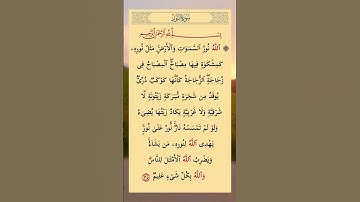 سُورَةُ النُّورِ
بِسْمِ اللَّهِ الرَّحْمَٰنِ الرَّحِيمِ
۞ اللَّهُ نُورُ السَّمَاوَاتِ وَالْأَرْضِ مَثَلُ نُورِهِ
كَمِشْكَاةٍ فِيهَا مِصْبَاحٌ الْمِصْبَاحُ فِي
زُجَاجَةٍ الزُّجَاجَةُ كَأَنَّهَا كَوْكَبٌ دُرِّيٌّ
يُوقَدُ مِن شَجَرَةٍ مُّبَارَكَةٍ زَيْتُونَةٍ لَّا
شَرْقِيَّةٍ وَلَا غَرْبِيَّةٍ يَكَادُ زَيْتُهَا يُضِيءُ
وَلَوْ لَمْ تَمْسَسْهُ نَارٌ نُّورٌ عَلَىٰ نُورٍ
يَهْدِي اللَّهُ لِنُورِهِ مَن يَشَاءُ
وَيَضْرِبُ اللَّهُ الْأَمْثَالَ لِلنَّاسِ
وَاللَّهُ بِكُلِّ شَيْءٍ عَلِيمٌ ٣٥